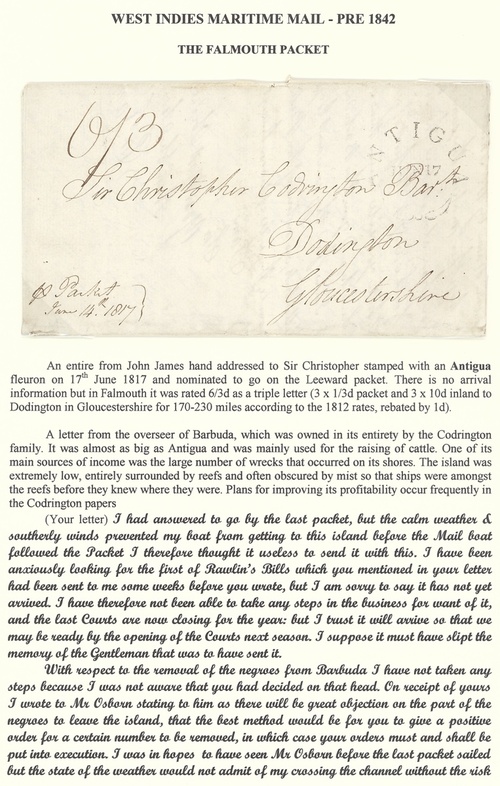 WEST INDIES MARITIME MAIL - PRE 1842
THE FALMOUTH PACKET
6/3
ANTIGUA
17
Sir Christopher Codrington Bart.
Dodington
Gloucestershire
Packet
June 14th 1817
An entire from John James hand addressed to Sir Christopher stamped with an Antigua
fleuron on 17th June 1817 and nominated to go on the Leeward packet. There is no arrival
information but in Falmouth it was rated 6/3d as a triple letter (3 x 1/3d packet and 3 x 10d inland to
Dodington in Gloucestershire for 170-230 miles according to the 1812 rates, rebated by 1d).
A letter from the overseer of Barbuda, which was owned in its entirety by the Codrington
family. It was almost as big as Antigua and was mainly used for the raising of cattle. One of its
main sources of income was the large number of wrecks that occurred on its shores. The island was
extremely low, entirely surrounded by reefs and often obscured by mist so that ships were amongst
the reefs before they knew where they were. Plans for improving its profitability occur frequently in
the Codrington papers
(Your letter) I had answered to go by the last packet, but the calm weather &
southerly winds prevented my boat from getting to this island before the Mail boat
followed the Packet I therefore thought it useless to send it with this. I have been
anxiously looking for the first of Rawlin's Bills which you mentioned in your letter
had been sent to me some weeks before you wrote, but I am sorry to say it has not yet
arrived. I have therefore not been able to take any steps in the business for want of it,
and the last Courts are now closing for the year: but I trust it will arrive so that we
may be ready by the opening of the Courts next season. I suppose it must have slipt the
memory of the Gentleman that was to have sent it.
With respect to the removal of the negroes from Barbuda I have not taken any
steps because I was not aware that you had decided on that head. On receipt of yours
I wrote to Mr Osborn stating to him as there will be great objection on the part of the
negroes to leave the island, that the best method would be for you to give a positive
order for a certain number to be removed, in which case your orders must and shall be
put into execution. I was in hopes to have seen Mr Osborn before the last packet sailed
but the state of the weather would not admit of my crossing the channel without the risk